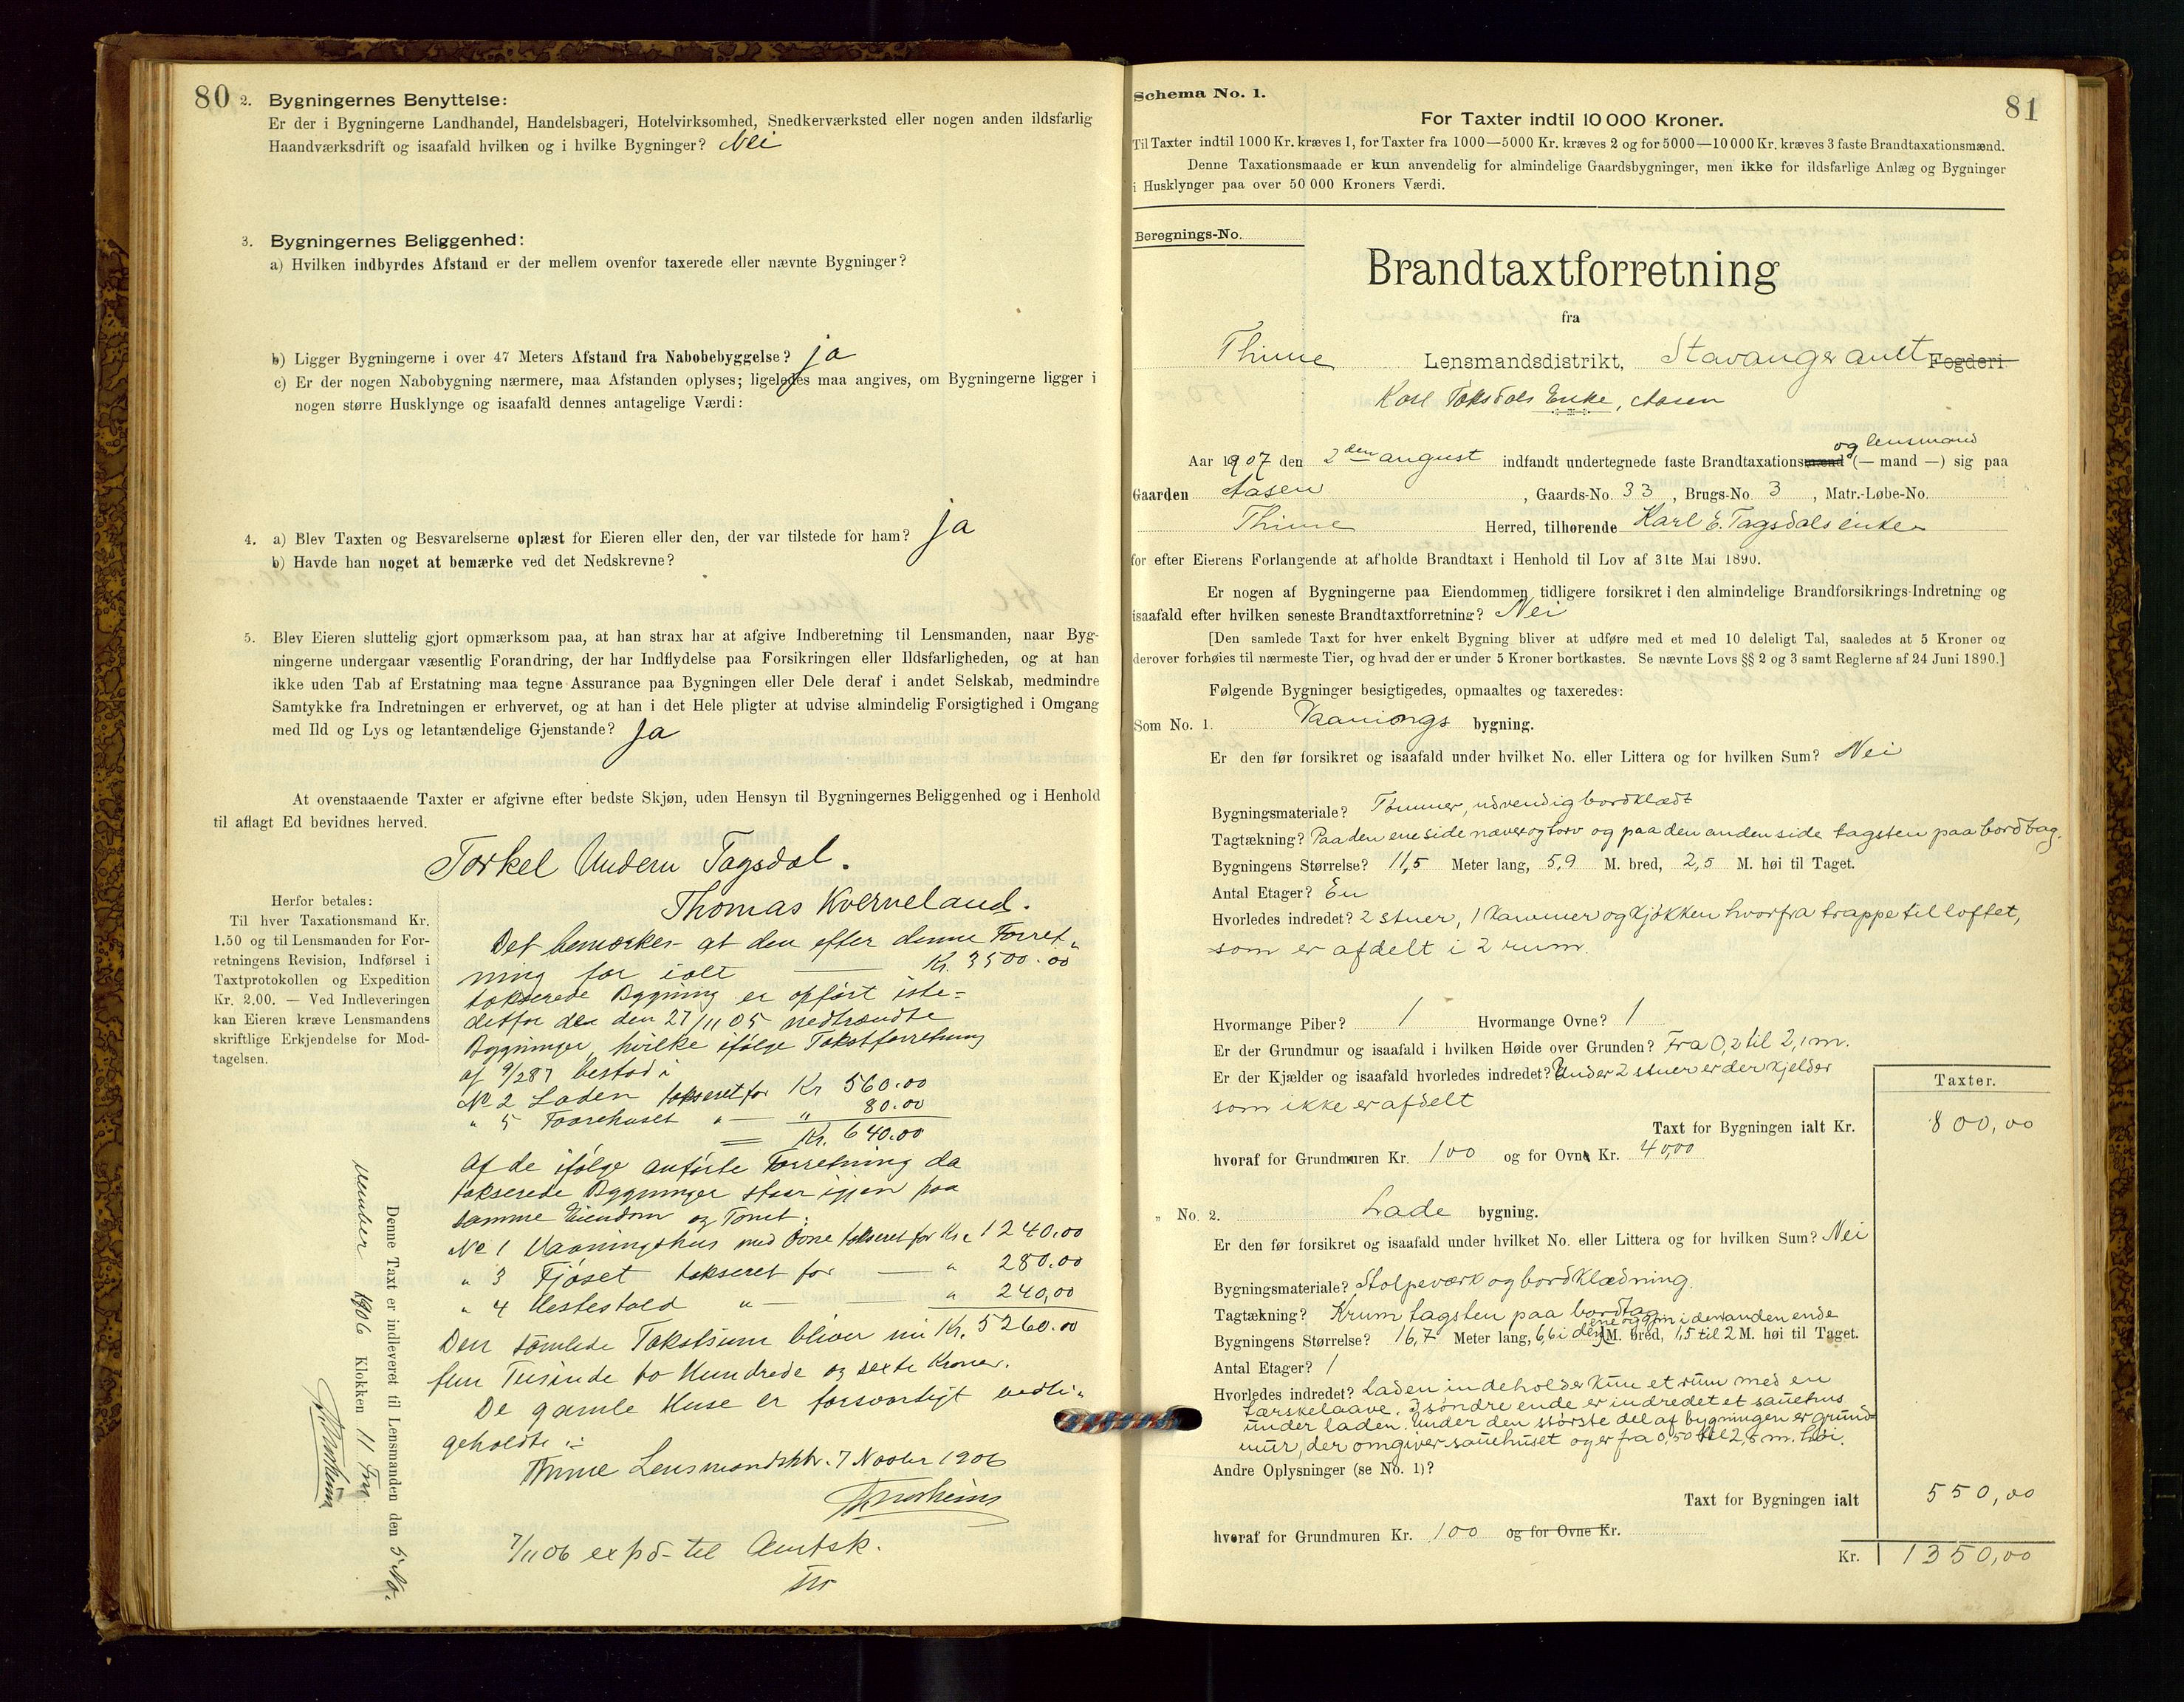 80
2. Bygningernes Benyttelse:
Er der i Bygningerne Landhandel, Handelsbageri, Hotelvirksomhed, Snedkerværksted eller nogen anden ildsfarlig
Haandværksdrift og isaafald hvilken og i hvilke Bygninger? Nei
3. Bygningernes Beliggenhed:
a) Hvilken indbyrdes Afstand er der mellem ovenfor taxerede eller nævnte Bygninger?
b) Ligger Bygningerne i over 47 Meters Afstand fra Nabobebyggelse? ja
c) Er der nogen Nabobygning nærmere, maa Afstanden oplyses; ligeledes maa angives, om Bygningerne ligger i
nogen større Husklynge og isaafald dennes antagelige Værdi:
4. a) Blev Taxten og Besvarelserne oplæst for Eieren eller den, der var tilstede for ham? ja
b) Havde han noget at bemærke ved det Nedskrevne?
5. Blev Eieren sluttelig gjort opmærksom paa, at han strax har at afgive Indberetning til Lensmanden, naar Byg-
ningerne undergaar væsentlig Forandring, der har Indflydelse paa Forsikringen eller Ildsfarligheden, og at han
ikke uden Tab af Erstatning maa tegne Assurance paa Bygningen eller Dele deraf i andet Selskab, medmindre
Samtykke fra Indretningen er erhvervet, og at han i det Hele pligter at udvise almindelig Forsigtighed i Omgang
med Ild og Lys og letantændelige Gjenstande? ja
At ovenstaaende Taxter er afgivne efter bedste Skjøn, uden Hensyn til Bygningernes Beliggenhed og i Henhold
til aflagt Ed bevidnes herved.
Torkel Undem Tagsdal.
Thomas Kverneland.
Herfor betales:
Til hver Taxationsmand Kr.
1.50 og til Lensmanden for For-
retningens Revision, Indførsel i
Taxtprotokollen og Expedition
Kr. 2.00. — Ved Indleveringen
kan Eieren kræve Lensmandens
skriftlige Erkjendelse for Mod-
tagelsen.
Det bemærkes at den efter denne Forret-
ning for ialt — Kr. 3500.00
takserede Bygning er opført iste-
detfor den 27/11 05 nedbrændte
Bygninger, hvilke ifølge Takstforretning
af 9/2 87 bestod i
No 2 Laden takseret for Kr 560.00
" 5 Faarehuset " — " 80.00
Kr. 640.00
Af de ifølge anførte Forretning da
takserede Bygninger staar igjen paa
samme Eiendom og Tomt:
No 1 Vaaningshus med Ovne takseret for Kr. 1240.00
" 3 Fjøset takseret for — " 280.00
" 4 Hestestald " — " 240,00
Den samlede Takstsum bliver nu Kr. 5260.00
fem Tusinde to Hundrede og sexti Kroner.
De gamle Huse er forsvarligt vedli-
geholdte.
Thime Lensmandsktr. 7 Novbr 1906
7/11 06 expd. til Amtsk.
Denne Taxt er indleveret til Lensmanden den 5 No-
vember 1906 Klokken 11 Fm
81
Schema No. 1.
For Taxter indtil 10 000 Kroner.
Til Taxter indtil 1000 Kr. kræves 1, for Taxter fra 1000—5000 Kr. kræves 2 og for 5000—10000 Kr. kræves 3 faste Brandtaxationsmænd.
Denne Taxationsmaade er kun anvendelig for almindelige Gaardsbygninger, men ikke for ildsfarlige Anlæg og Bygninger
i Husklynger paa over 50 000 Kroners Værdi.
Beregnings-No.
Brandtaxtforretning
fra
Thime Lensmandsdistrikt, Stavanger amt Fogderi
Karl Taksdals Enke, Aasen
og lensmand
Aar 1907 den 2den august indfandt undertegnede faste Brandtaxationsmænd (— mand —) sig paa
Gaarden Aasen, Gaards-No. 33, Brugs-No. 3, Matr.-Løbe-No.
Thime Herred, tilhørende Karl E. Tagsdals enke
for efter Eierens Forlangende at afholde Brandtaxt i Henhold til Lov af 31te Mai 1890.
Er nogen af Bygningerne paa Eiendommen tidligere forsikret i den almindelige Brandforsikrings-Indretning og
isaafald efter hvilken seneste Brandtaxtforretning? Nei
[Den samlede Taxt for hver enkelt Bygning bliver at udføre med et med 10 deleligt Tal, saaledes at 5 Kroner og
derover forhøies til nærmeste Tier, og hvad der er under 5 Kroner bortkastes. Se nævnte Lovs §§ 2 og 3 samt Reglerne af 24 Juni 1890.]
Følgende Bygninger besigtigedes, opmaaltes og taxeredes:
Som No. 1. Vaanings bygning.
Er den før forsikret og isaafald under hvilket No. eller Littera og for hvilken Sum? Nei
Bygningsmateriale? Tømmer, udvendig bordklædt
Tagtækning? Paa den ene side næver og torv og paa den anden side tagsten paa bordtag.
Bygningens Størrelse? 11,5 Meter lang, 5,9 M. bred, 2,5 M. høi til Taget.
Antal Etager? En
Hvorledes indredet? 2 stuer, 1 kammer og kjøkken hvorfra trappe til loftet,
som er afdelt i 2 rum.
Hvormange Piber? 1 Hvormange Ovne? 1
Er der Grundmur og isaafald i hvilken Høide over Grunden? Fra 0,2 til 2,1 m.
Er der Kjælder og isaafald hvorledes indredet? Under 2 stuer er der kjelder
som ikke er afdelt
Taxter.
Taxt for Bygningen ialt Kr. 800,00
hvoraf for Grundmuren Kr. 100 og for Ovne Kr. 40,00
" No. 2. Lade bygning.
Er den før forsikret og isaafald under hvilket No. eller Littera og for hvilken Sum? Nei
Bygningsmateriale? Stolpeværk og bordklædning.
Tagtækning? Krum tagsten paa bordtag
Bygningens Størrelse? 16,7 Meter lang, 6,6 i den ene og i den anden ende M. bred, 1,5 til 2 M. høi til Taget.
Antal Etager? 1
Hvorledes indredet? Laden indeholder kun et rum med en
tærskelaave. I søndre ende er indredet et sauehus
under laden. Under den største del af bygningen er grund-
mur, der omgiver sauehuset og er fra 0,50 til 2,5 m. høi.
Andre Oplysninger (se No. 1)?
Taxt for Bygningen ialt 550,00
hvoraf for Grundmuren Kr. 100 og for Ovne Kr.
Kr. 1350,00